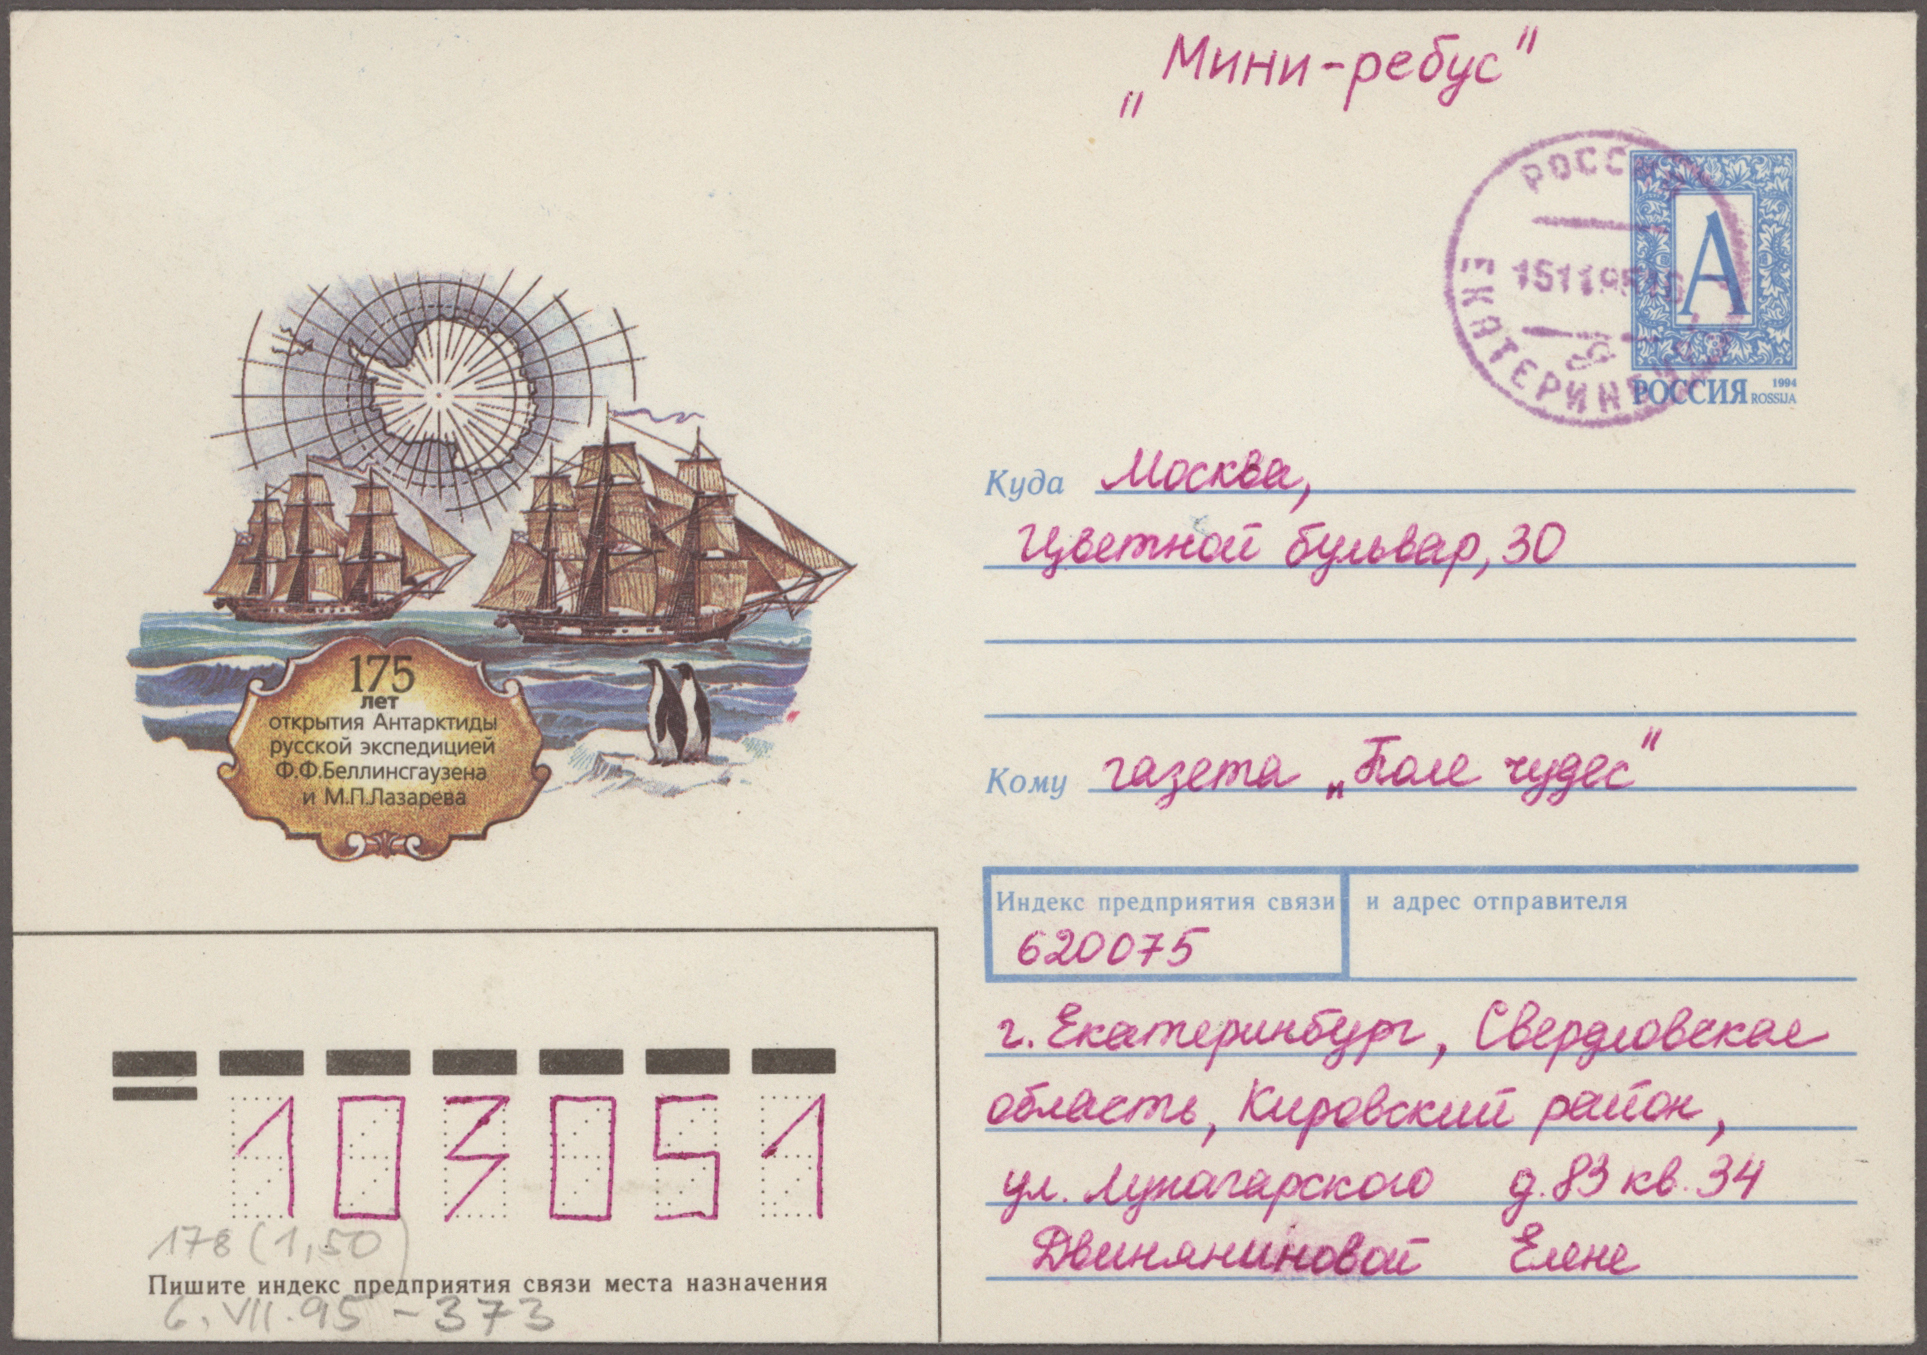 "Мини-ребус"
РОССИЯ
ЕКАТЕРИНБУРГ
А
РОССИЯ 1994
ROSSIJA
175
лет
открытия Антарктиды
русской экспедицией
Ф.Ф.Беллинсгаузена
и М.П.Лазарева
Куда Москва,
Цветной бульвар, 30
Кому газета „Поле чудес"
Индекс предприятия связи и адрес отправителя
620075
г. Екатеринбург, Свердловская
область, Кировский район,
ул. Луначарского д. 83 кв. 34
Двиняниновой Елене
103051
178 (1,50)
Пишите индекс предприятия связи места назначения
6. VII. 95 - 373